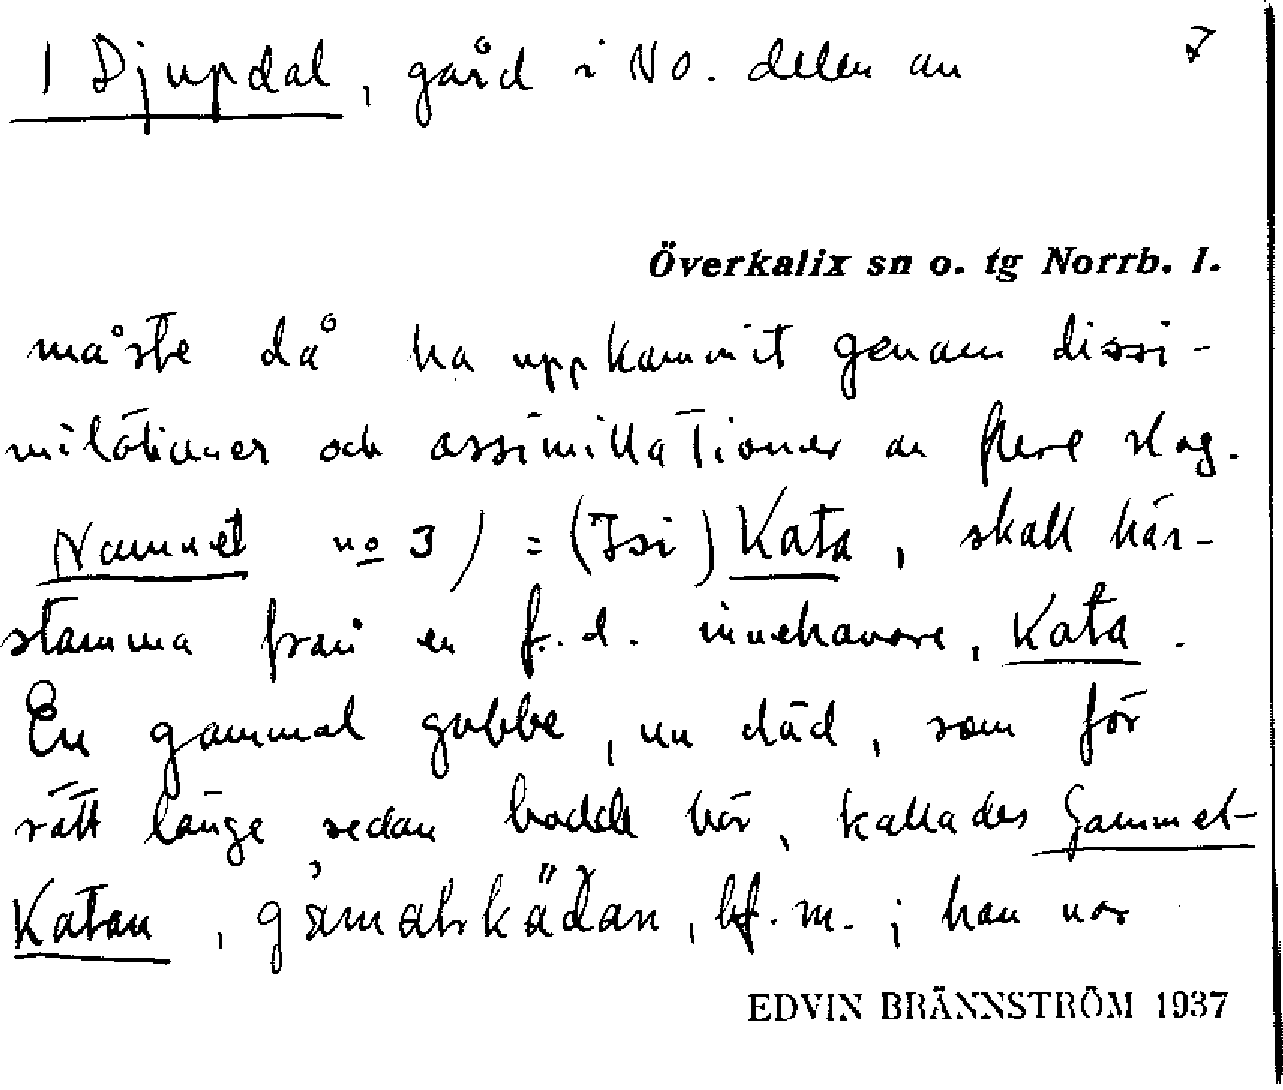 1 Djupdal, gård i NO. delen av 7
Överkalix sn o. tg Norrb. l.
måste då ha uppkommit genom dissi-
milationer och assimillationer av flere slag.
Namnet no 3) = (Isi) Kata, skall här-
stamma från en f.d. innehavare, Kata.
En gammal gubbe, nu död, som för
rätt länge sedan bodde här, kallades Gammel-
Katan, bf. m. ; han var
EDVIN BRÄNNSTRÖM 1937